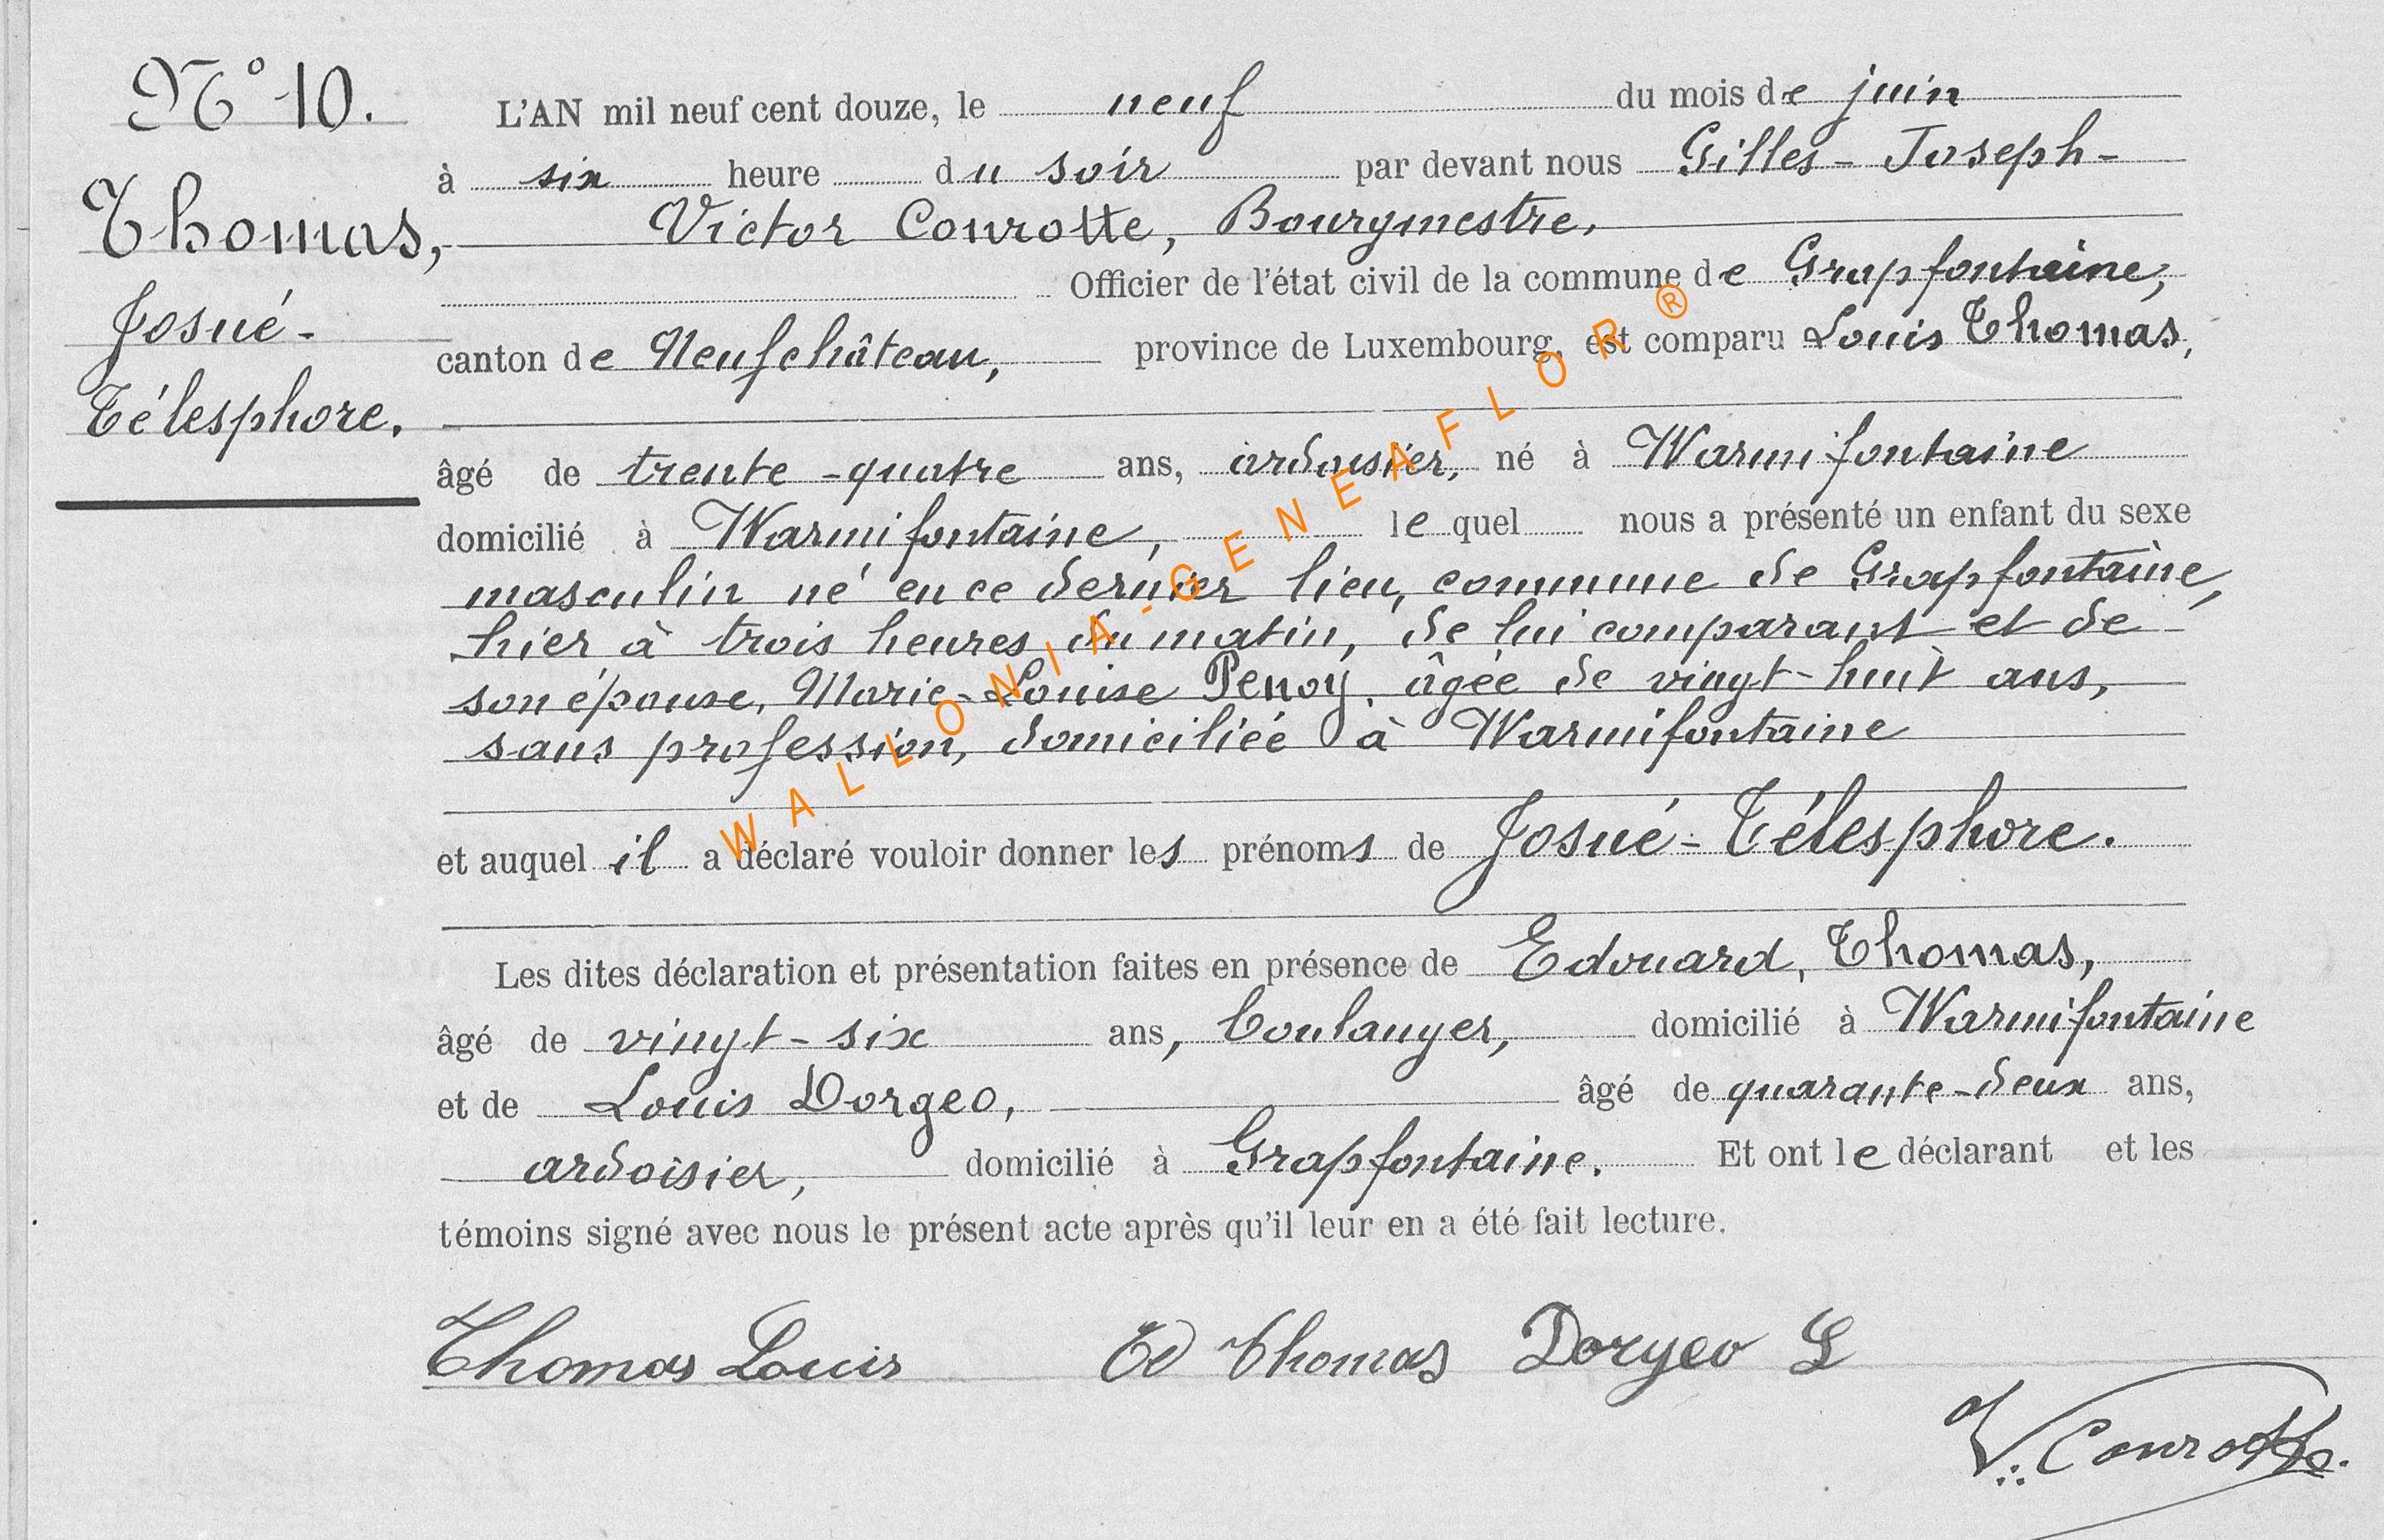 N° 10.
Thomas,
Josué-
Télesphore.
L'AN mil neuf cent douze, le neuf du mois de juin
à six heure du soir par devant nous Gilles-Joseph-
Victor Conrotte, Bourgmestre,
Officier de l'état civil de la commune de Grapfontaine,
canton de Neufchâteau, province de Luxembourg, est comparu Louis Thomas,
âgé de trente-quatre ans, ardoisier, né à Warmifontaine
domicilié à Warmifontaine, lequel nous a présenté un enfant du sexe
masculin né en ce dernier lieu, commune de Grapfontaine,
hier à trois heures du matin, de lui comparant et de
son épouse, Marie-Louise Penoy, âgée de vingt-huit ans,
sans profession, domiciliée à Warmifontaine
et auquel il a déclaré vouloir donner les prénoms de Josué-Télesphore.
Les dites déclaration et présentation faites en présence de Edouard, Thomas,
âgé de vingt-six ans, boulanger, domicilié à Warmifontaine
et de Louis Dorgeo, âgé de quarante-deux ans,
ardoisier, domicilié à Grapfontaine. Et ont le déclarant et les
témoins signé avec nous le présent acte après qu'il leur en a été fait lecture.
Thomas Louis Ed Thomas Dorgeo L
V. Conrotte.
WALLONIA-GENEAFLOR ®